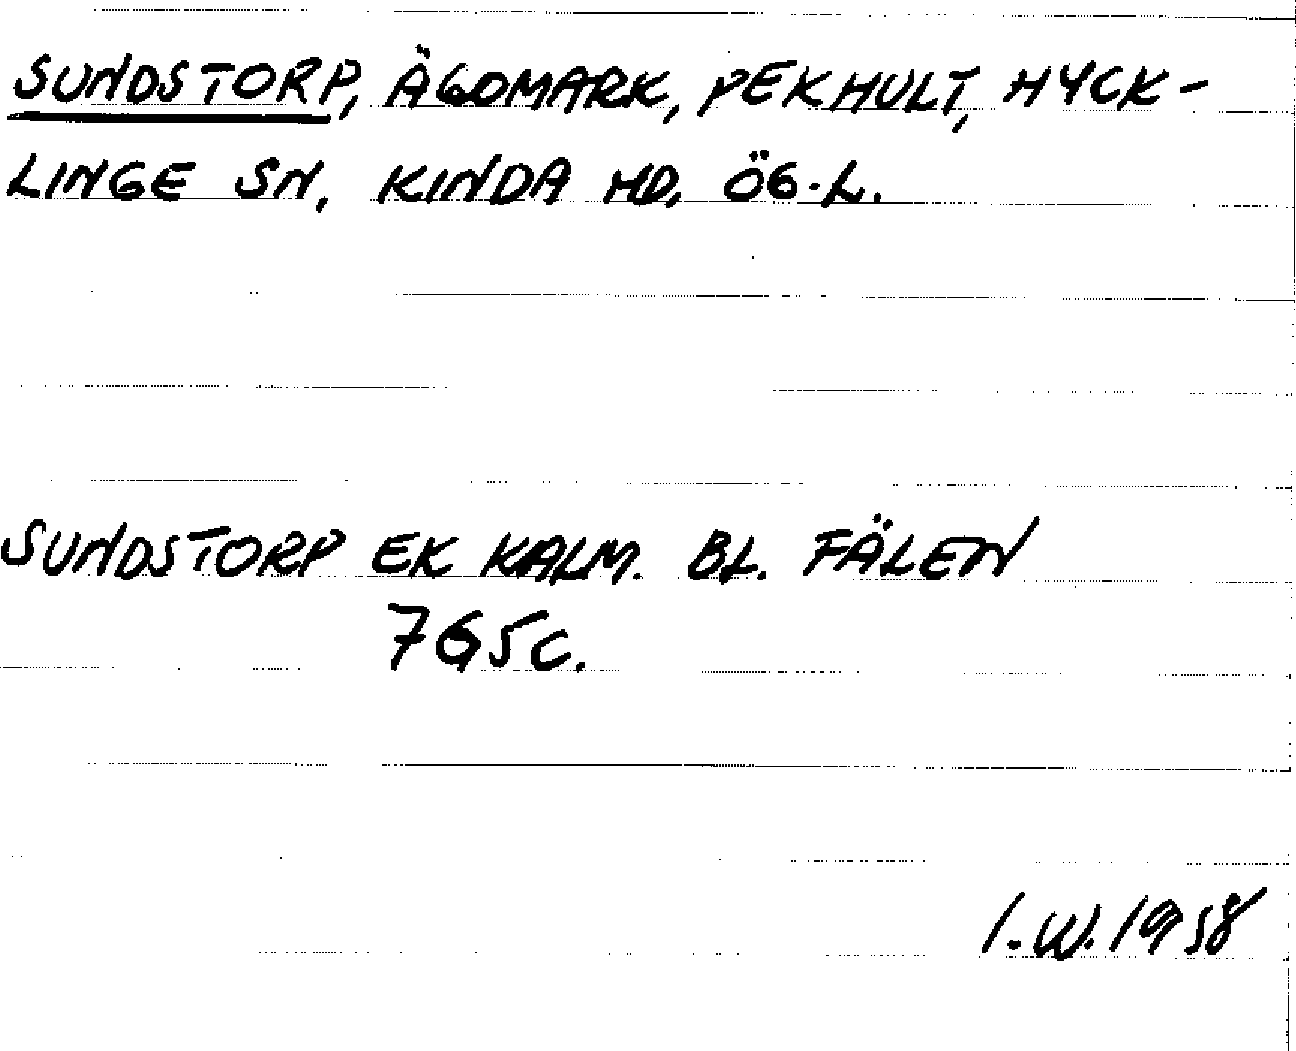 SUNDSTORP, ÄGOMARK, PEKHULT, HYCK-
LINGE SN. KINDA HD. ÖG.L.
SUNDSTORP EK KALM. BL. FÄLEN
7G5c.
I.W. 1958